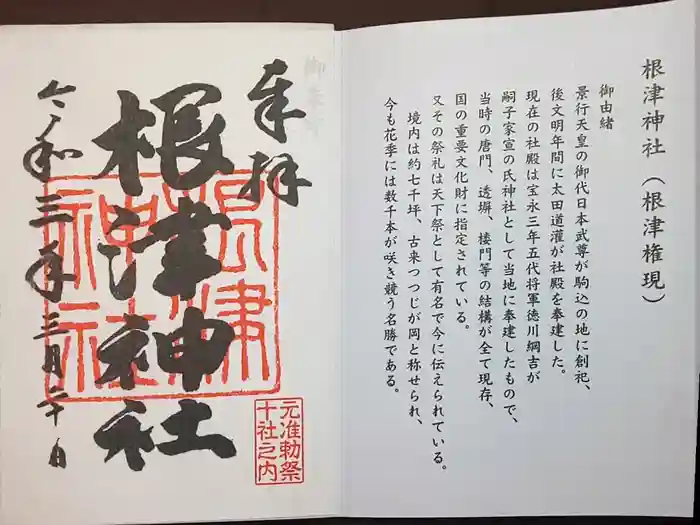 根津神社(根津権現)
御由緒
景行天皇の御代日本武尊が駒込の地に創祀、
後文明年間に太田道灌が社殿を奉建した。
現在の社殿は宝永三年五代将軍徳川綱吉が
嗣子家宣の氏神社として当地に奉建したもので、
当時の唐門、透塀、楼門等の結構が全て現存、
国の重要文化財に指定されている。
又その祭礼は天下祭として有名で今に伝えられている。
境内は約七千坪、古来つつじが岡と称せられ、
今も花季には数千本が咲き競う名勝である。
奉拝
根津神社
令和三年三月二十日
根津
神社
元准勅祭
十社之内